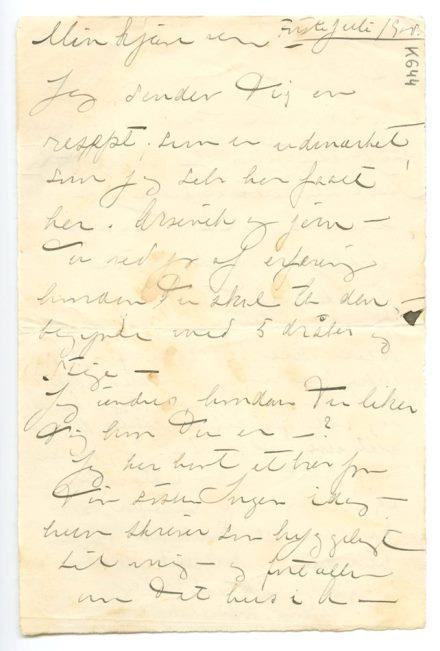 Første juli 1908.
K644
Min kjære ven
Jeg sender Dig en
resept, som er udmærket
som jeg selv har faaet
her. Arsenik og jern –
Du ved jo af erfaring
hvordan Du skal ta den, –
begynde med 5 dråber og
stige –
Jeg undres hvordan Du liker
Dig hvor Du er – ?
Jeg har havt et brev fra
Din søster Inger idag –
hun skriver saa hyggeligt
til mig – og fortæller
om Dit hus i